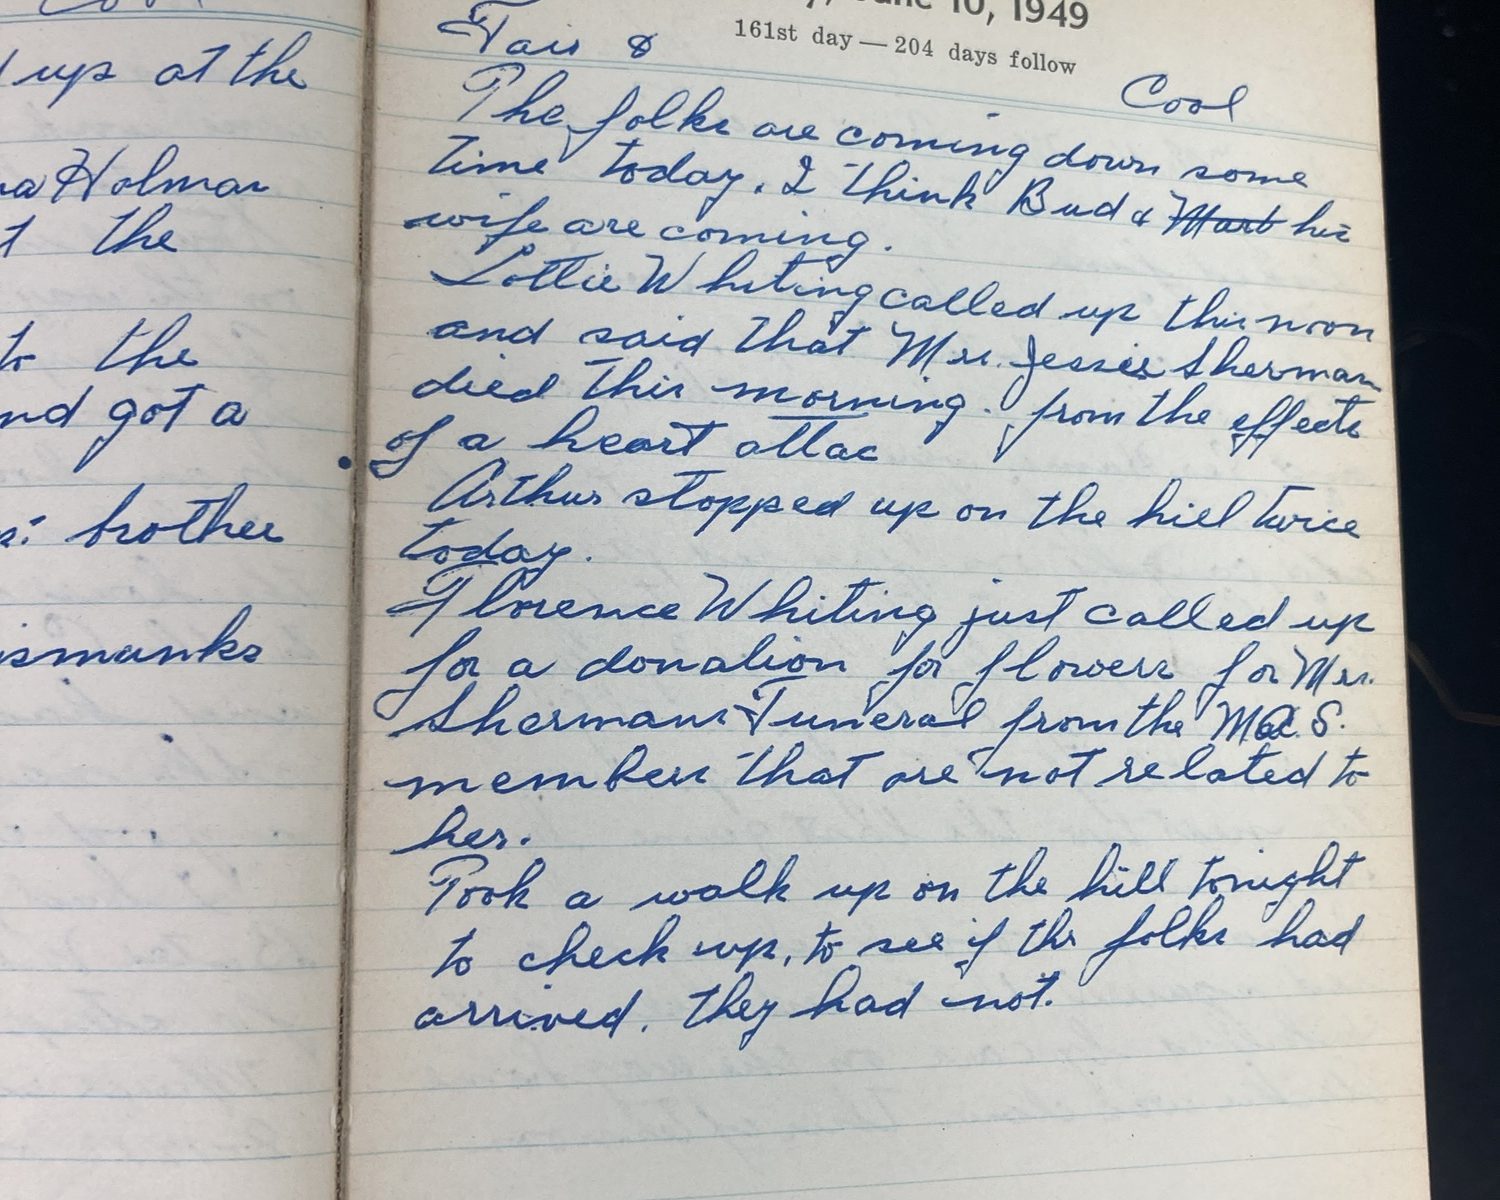 up at the
Holman
the
to the
and got a
brother
10, 1949
161st day — 204 days follow
Fair & Cool
The folks are coming down some
time today. I think Bud & Mart his
wife are coming.
Lottie Whiting called up this noon
and said that Mrs. Jessie Sherman
died this morning. from the effects
of a heart attac
Arthur stopped up on the hill twice
today.
Florence Whiting just called up
for a donation for flowers for Mrs.
Shermans Funeral from the S.
members that are not related to
her.
Took a walk up on the hill tonight
to check up, to see if the folks had
arrived. they had not.